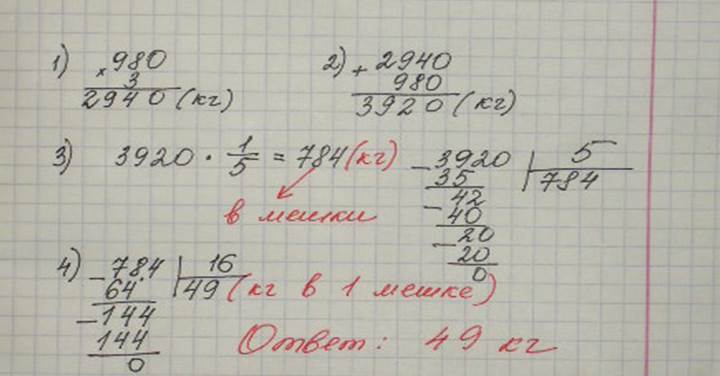 1) × 980
3
2940 (кг)
2) + 2940
980
3920 (кг)
3) 3920 · 1/5 = 784 (кг)
в мешки
- 3920 | 5
35 784
- 42
40
- 20
20
0
4) - 784 | 16
64 49 (кг в 1 мешке)
- 144
144
0
Ответ: 49 кг